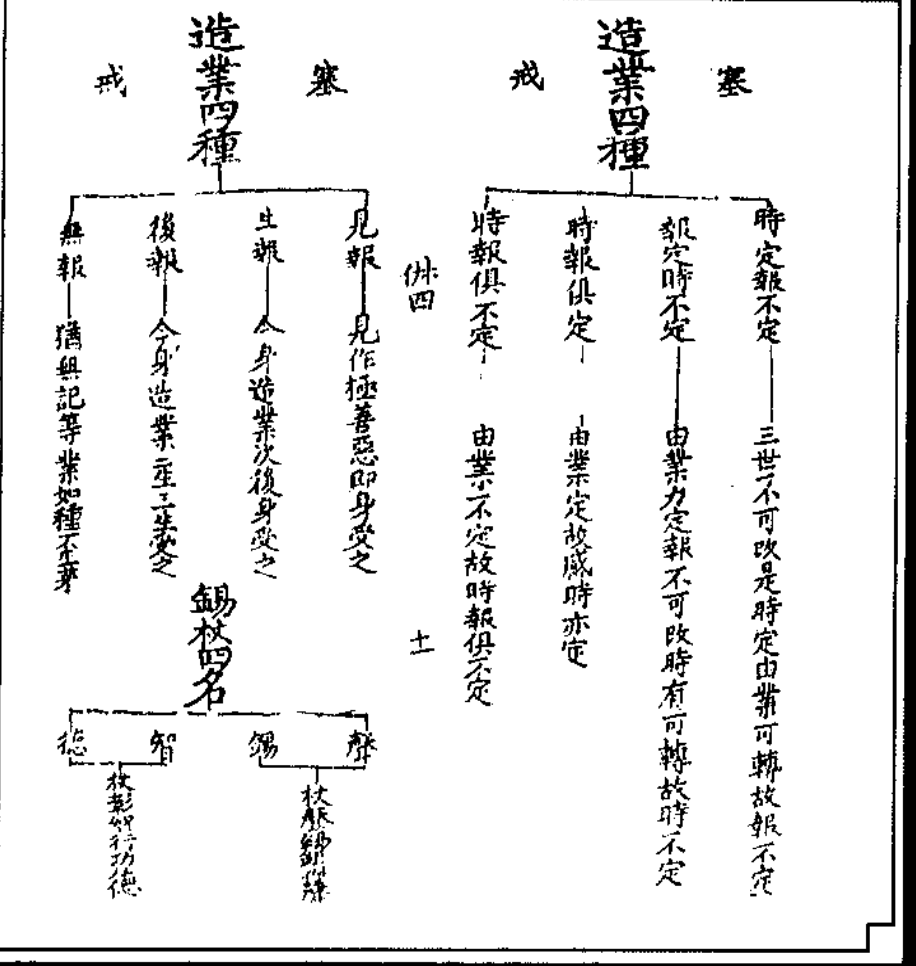 塞
造業四種
戒
時定報不定
三世不可改是時定由業可轉故報不定
報定時不定
由業力定報不可改時有可轉故時不定
時報俱定
由業定故感時亦定
時報俱不定
由業不定故時報俱不定
四
十一
塞
造業四種
戒
見報
見作極善惡即身受之
生報
今身造業次後身受之
後報
今身造業二生三生受之
無報
猶無記等業如種不芽
錫杖四名
聲
錫
杖
智
德
杖彰 行功德